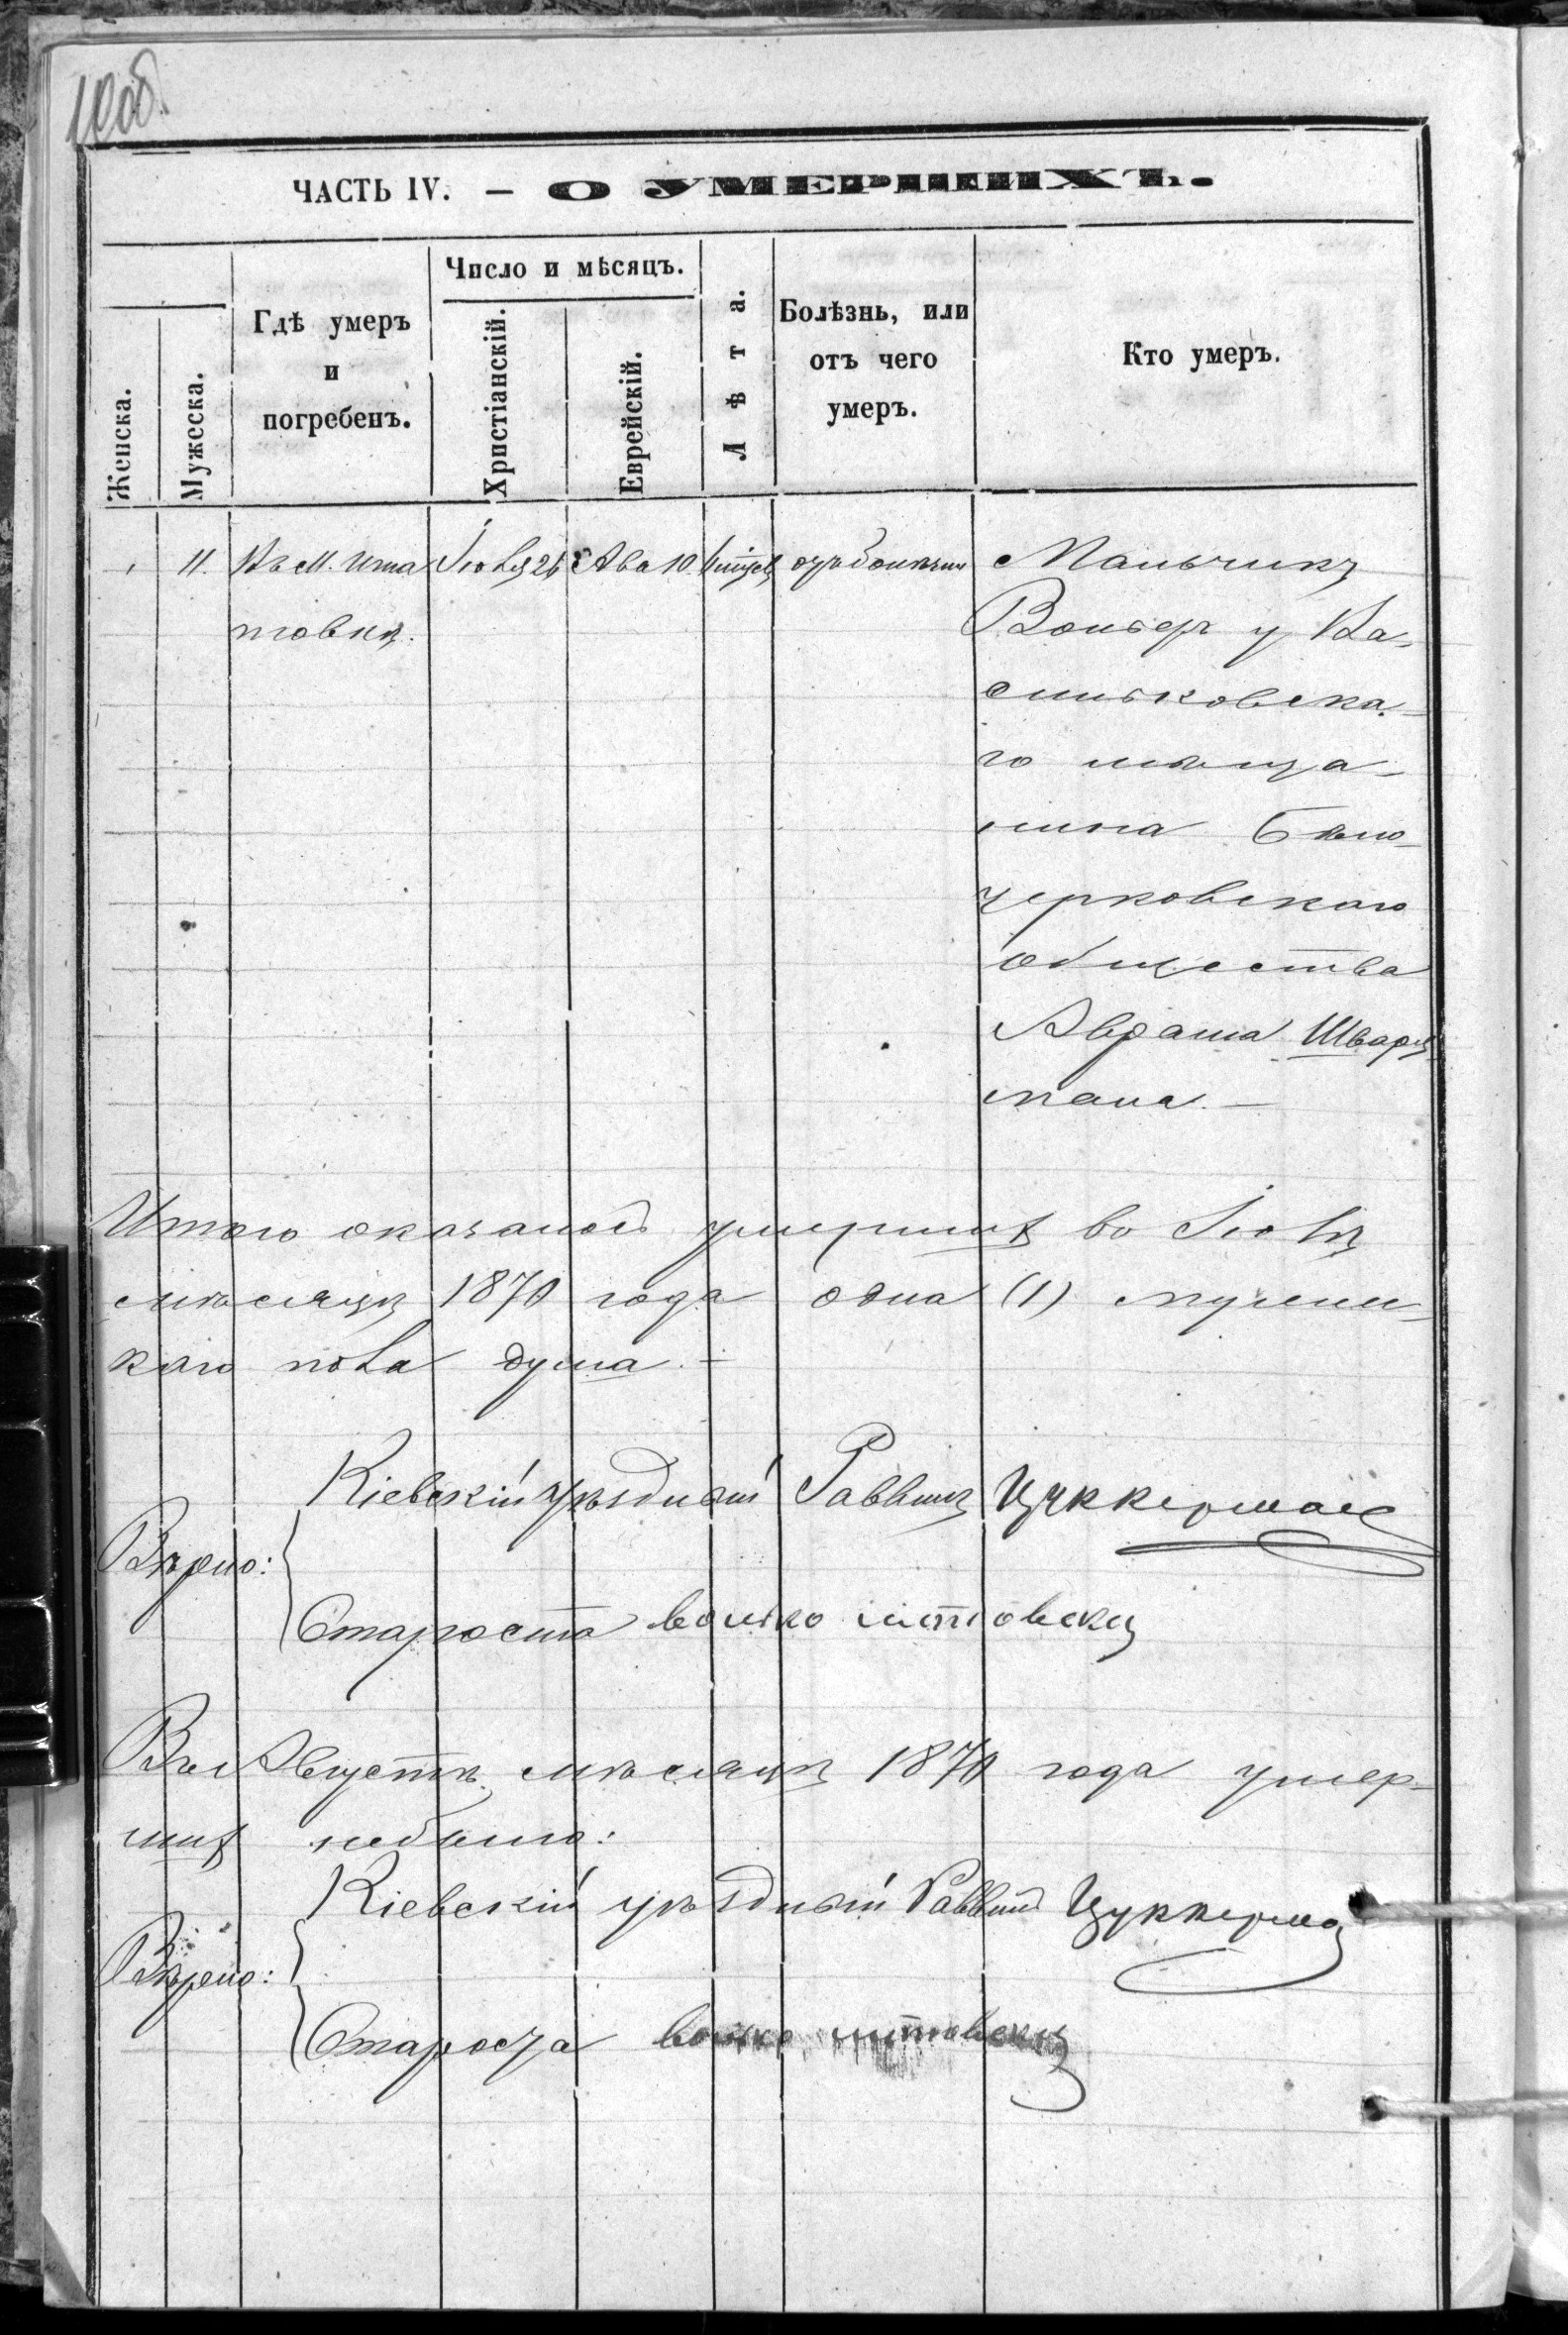 10об.
ЧАСТЬ IV. — О УМЕРШИХЪ.
Женска.
Мужеска.
Гдѣ умеръ
и
погребенъ.
Число и мѣсяцъ.
Христіанскій.
Еврейскій.
Лѣта.
Болѣзнь, или
отъ чего
умеръ.
Кто умеръ.
11. Въ М. Игна Іюля 26 Ава 10 Мальчикъ
товкѣ. Вольеръ у Ва-
сильковска-
го мѣща-
нина Бѣло-
церковскаго
общества
Абрама Шварц
мана. —
Итого оказалось умершихъ во Іюлѣ
мѣсяцѣ 1870 года одна (1) мужес-
каго пола душа. —
Кіевскій уѣздный Раввинъ Цуккерман
Вѣрно:
Староста волько литовски
Въ Августѣ мѣсяцѣ 1870 года умер-
шихъ небыло:
Кіевскій уѣздный Раввинъ Цуккерма
Вѣрно:
Староста волько литовски